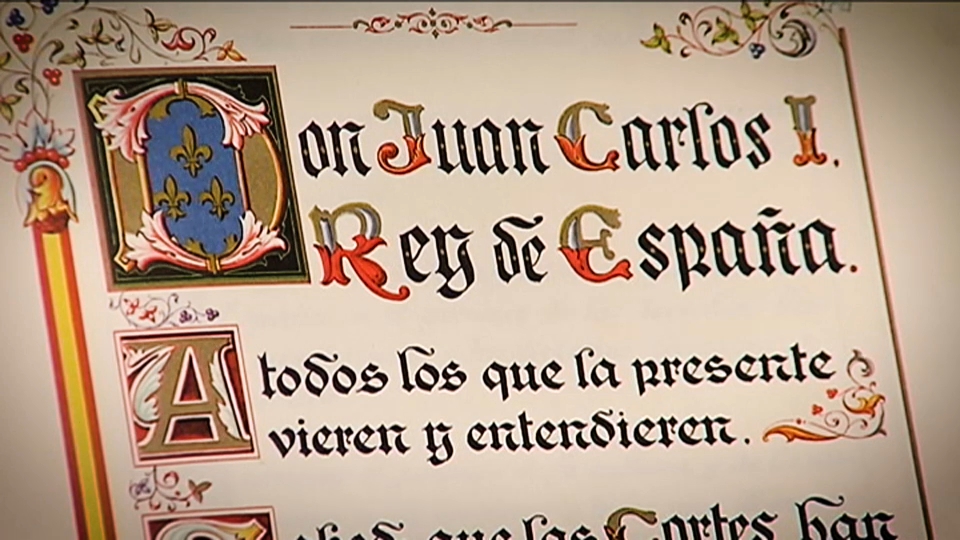 Don Juan Carlos I.
Rey de España.
A todos los que la presente
vieren y entendieren.
Sabed, que las Cortes han